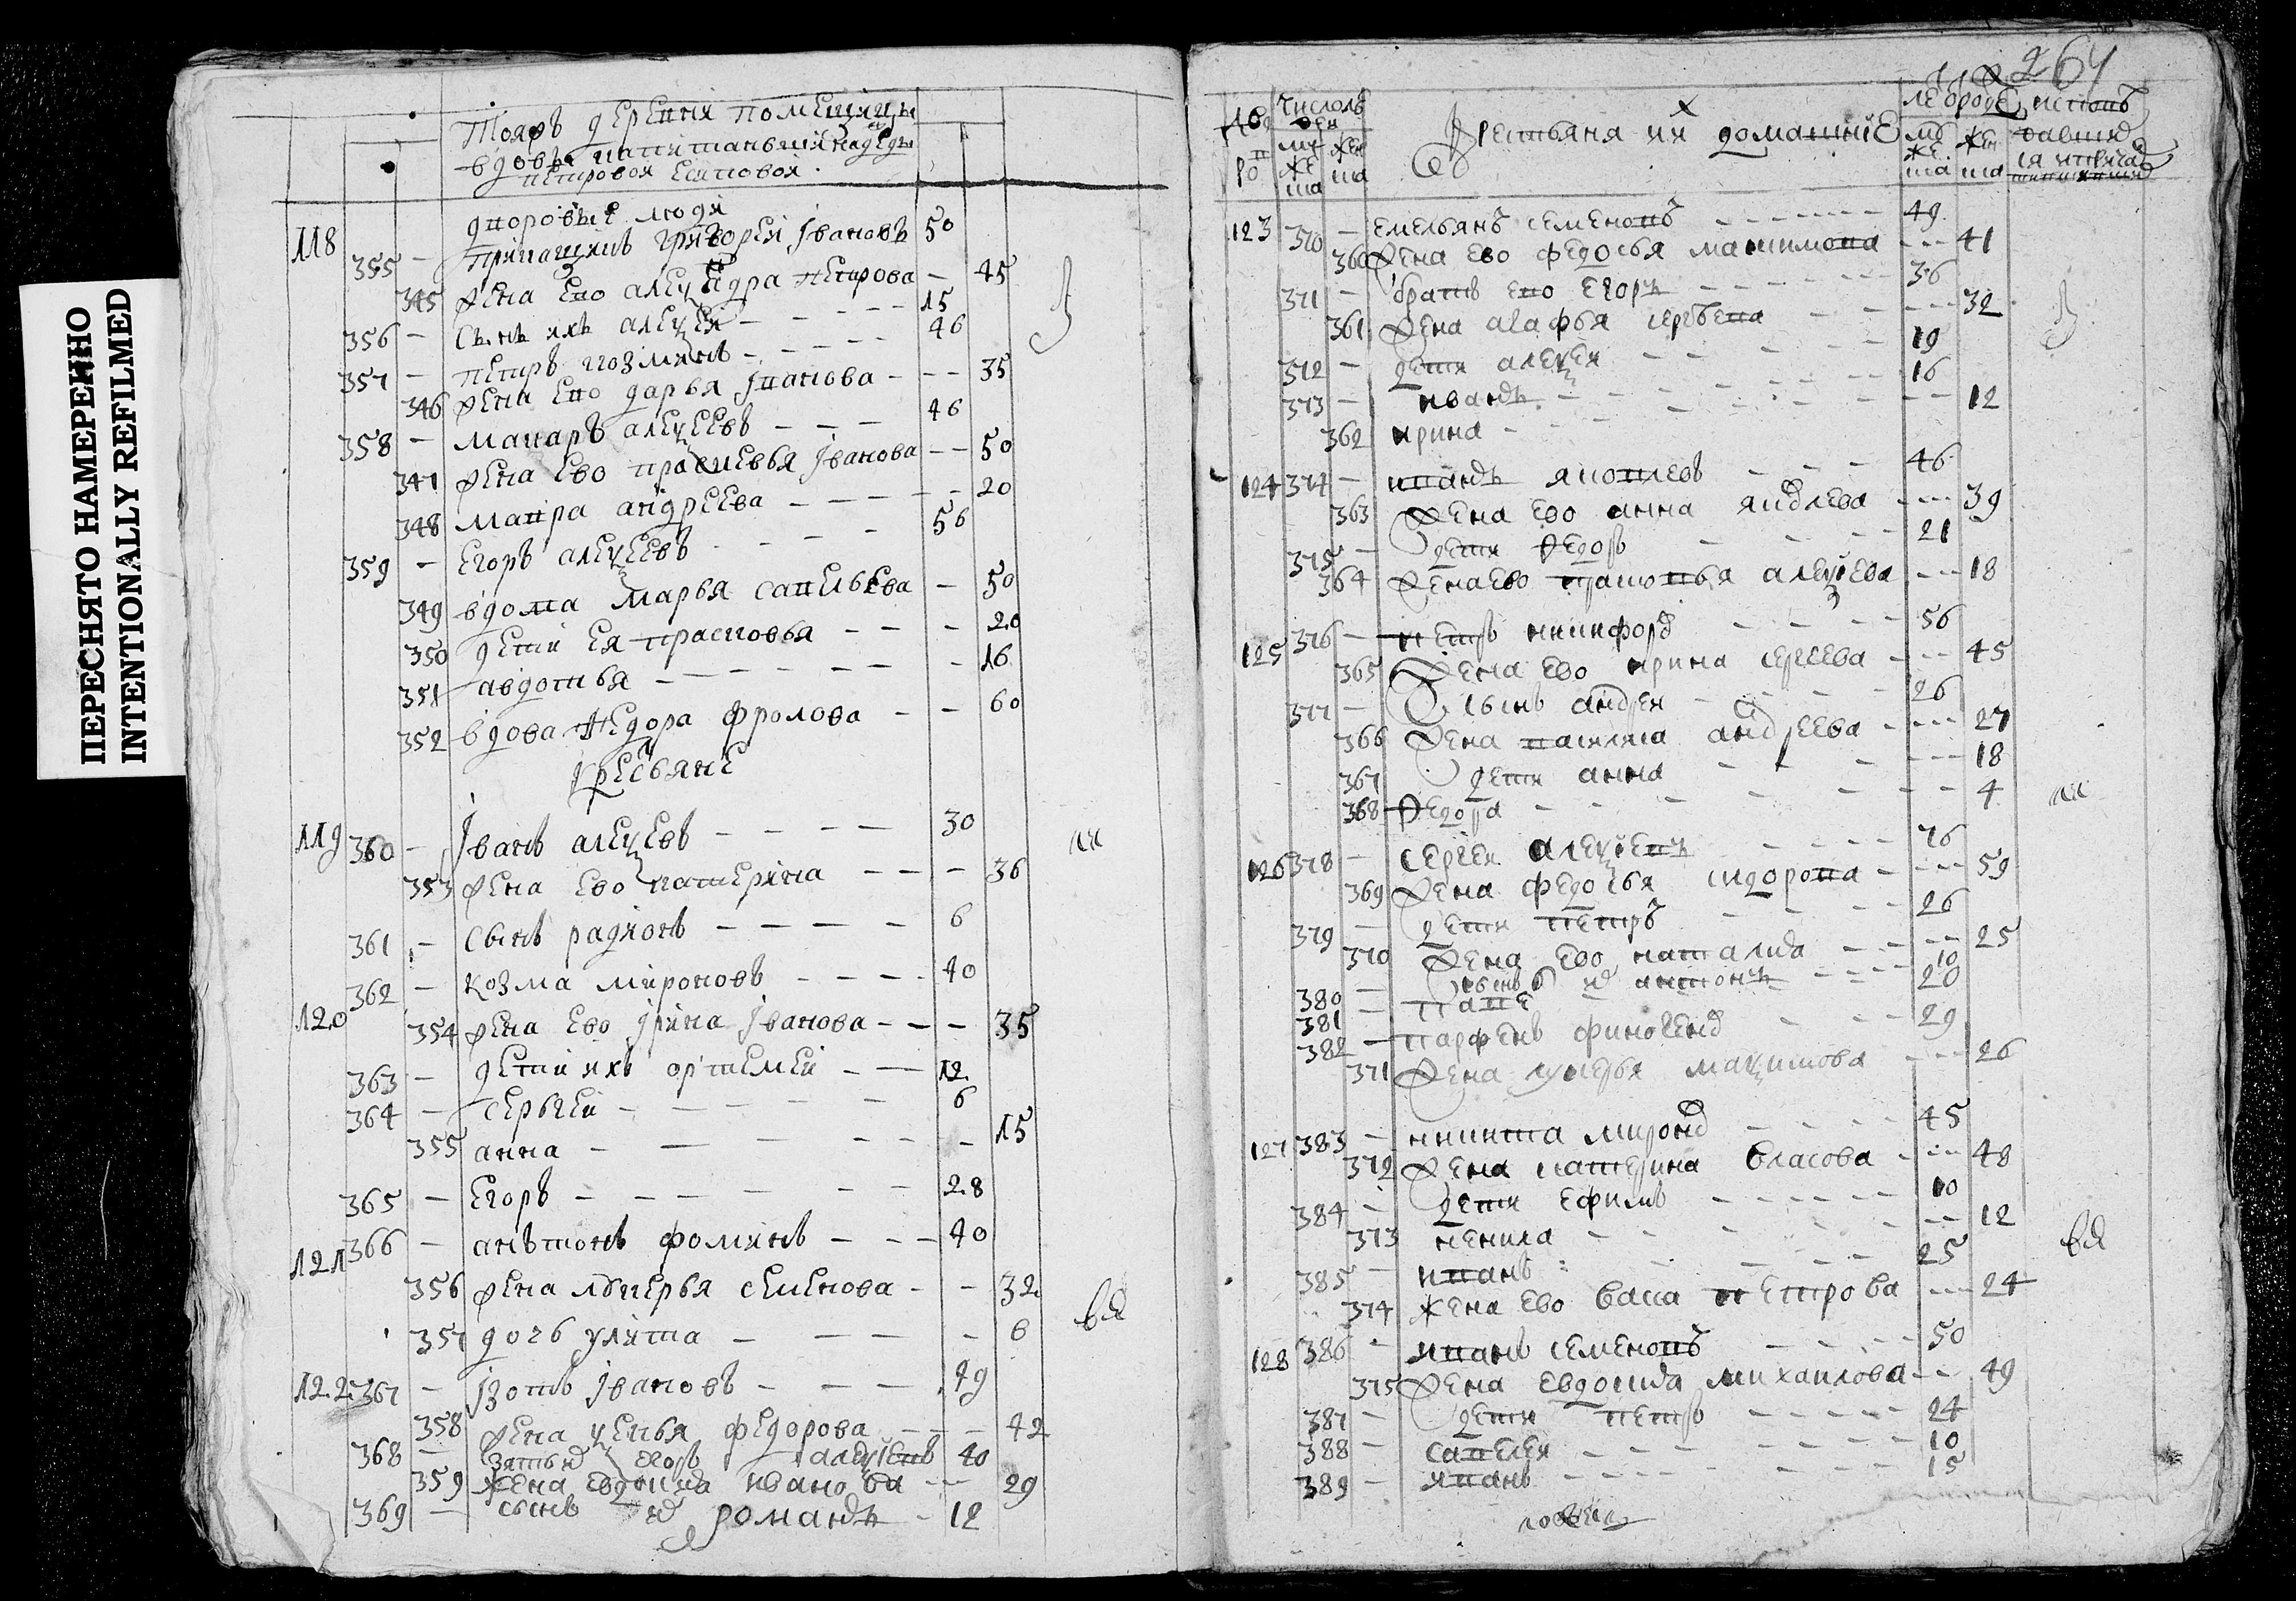 ПЕРЕСНЯТО НАМЕРЕННО
INTENTIONALLY REFILMED
Тояжъ деревни помещицы
вдовы капитанши надеды
петровой Есиповой
дворовые люди
118
355 — григорей Iвановъ 50
345 жена Ево алеѯандра петрова — 45
356 — Сынъ ихъ алеѯей — 15
357 — петръ козминъ — 46
346 жена Ево дарья Iванова — 35
358 — макаръ алеѯеевъ — 46
347 жена Ево прасковья Iванова — 50
348 мавра андреева — 20
359 — Егоръ алеѯеевъ — 56
349 вдова марья савельева — 50
350 дети Ея прасковья — 20
351 авдотья — 16
352 вдова федора фролова — 60
крестьяне
119 360 — Iванъ алеѯеевъ — 30
353 жена Ево катерина — 36
361 — Сынъ радионъ — 6
120 362 — козма мироновъ — 40
354 жена Ево Iрина Iванова — 35
363 — дети ихъ ортемей — 12
364 — Сергей — 6
355 анна — 15
365 — Егоръ — 28
121 366 — антонъ фоминъ — 40
356 жена лукерья семенова — 32
357 дочь улита — 6
122 367 — Iзотъ Iвановъ — 49
358 жена ѯенья федорова — 42
368 — зять Егоръ алеѯеевъ 40
359 жена Евдокия иванова — 29
369 — сынъ их романъ — 12
264
числомъ
Крестьяня ихъ домашние
123 370 — Емельянъ семеновъ — 49
360 жена Ево федосья максимова — 41
371 — братъ Ево Егоръ — 36
361 жена агафья сергеева — 32
372 — дети алеѯей — 19
373 — иванъ — 16
362 ирина — 12
124 374 — иванъ яковлевъ — 46
363 жена Ево анна яковлева — 39
375 — дети федоръ — 21
364 жена Ево алеѯеева — 18
125 376 — петръ никифоровъ — 56
365 жена Ево ирина сергеева — 45
377 — сынъ андрей — 26
366 жена василиса андреева — 27
367 дети анна — 18
368 федора — 4
126 378 — сергей алеѯеевъ — 76
369 жена федосья сидорова — 59
379 — дети петръ — 26
370 жена Ево наталия — 25
380 — сынъ их антонъ — 10
381 — — 20
382 — парфенъ финогеновъ — 29
371 жена лукерья маѯимова — 26
127 383 — никита мироновъ — 45
372 жена катерина власова — 48
384 — дети Ефимъ — 10
373 ненила — 12
385 — иванъ — 25
374 жена Ево васа петрова — 24
128 386 — иванъ семеновъ — 50
375 жена Евдокия михаилова — 49
387 — дети петръ — 24
388 — савелей — 10
389 — иванъ — 15